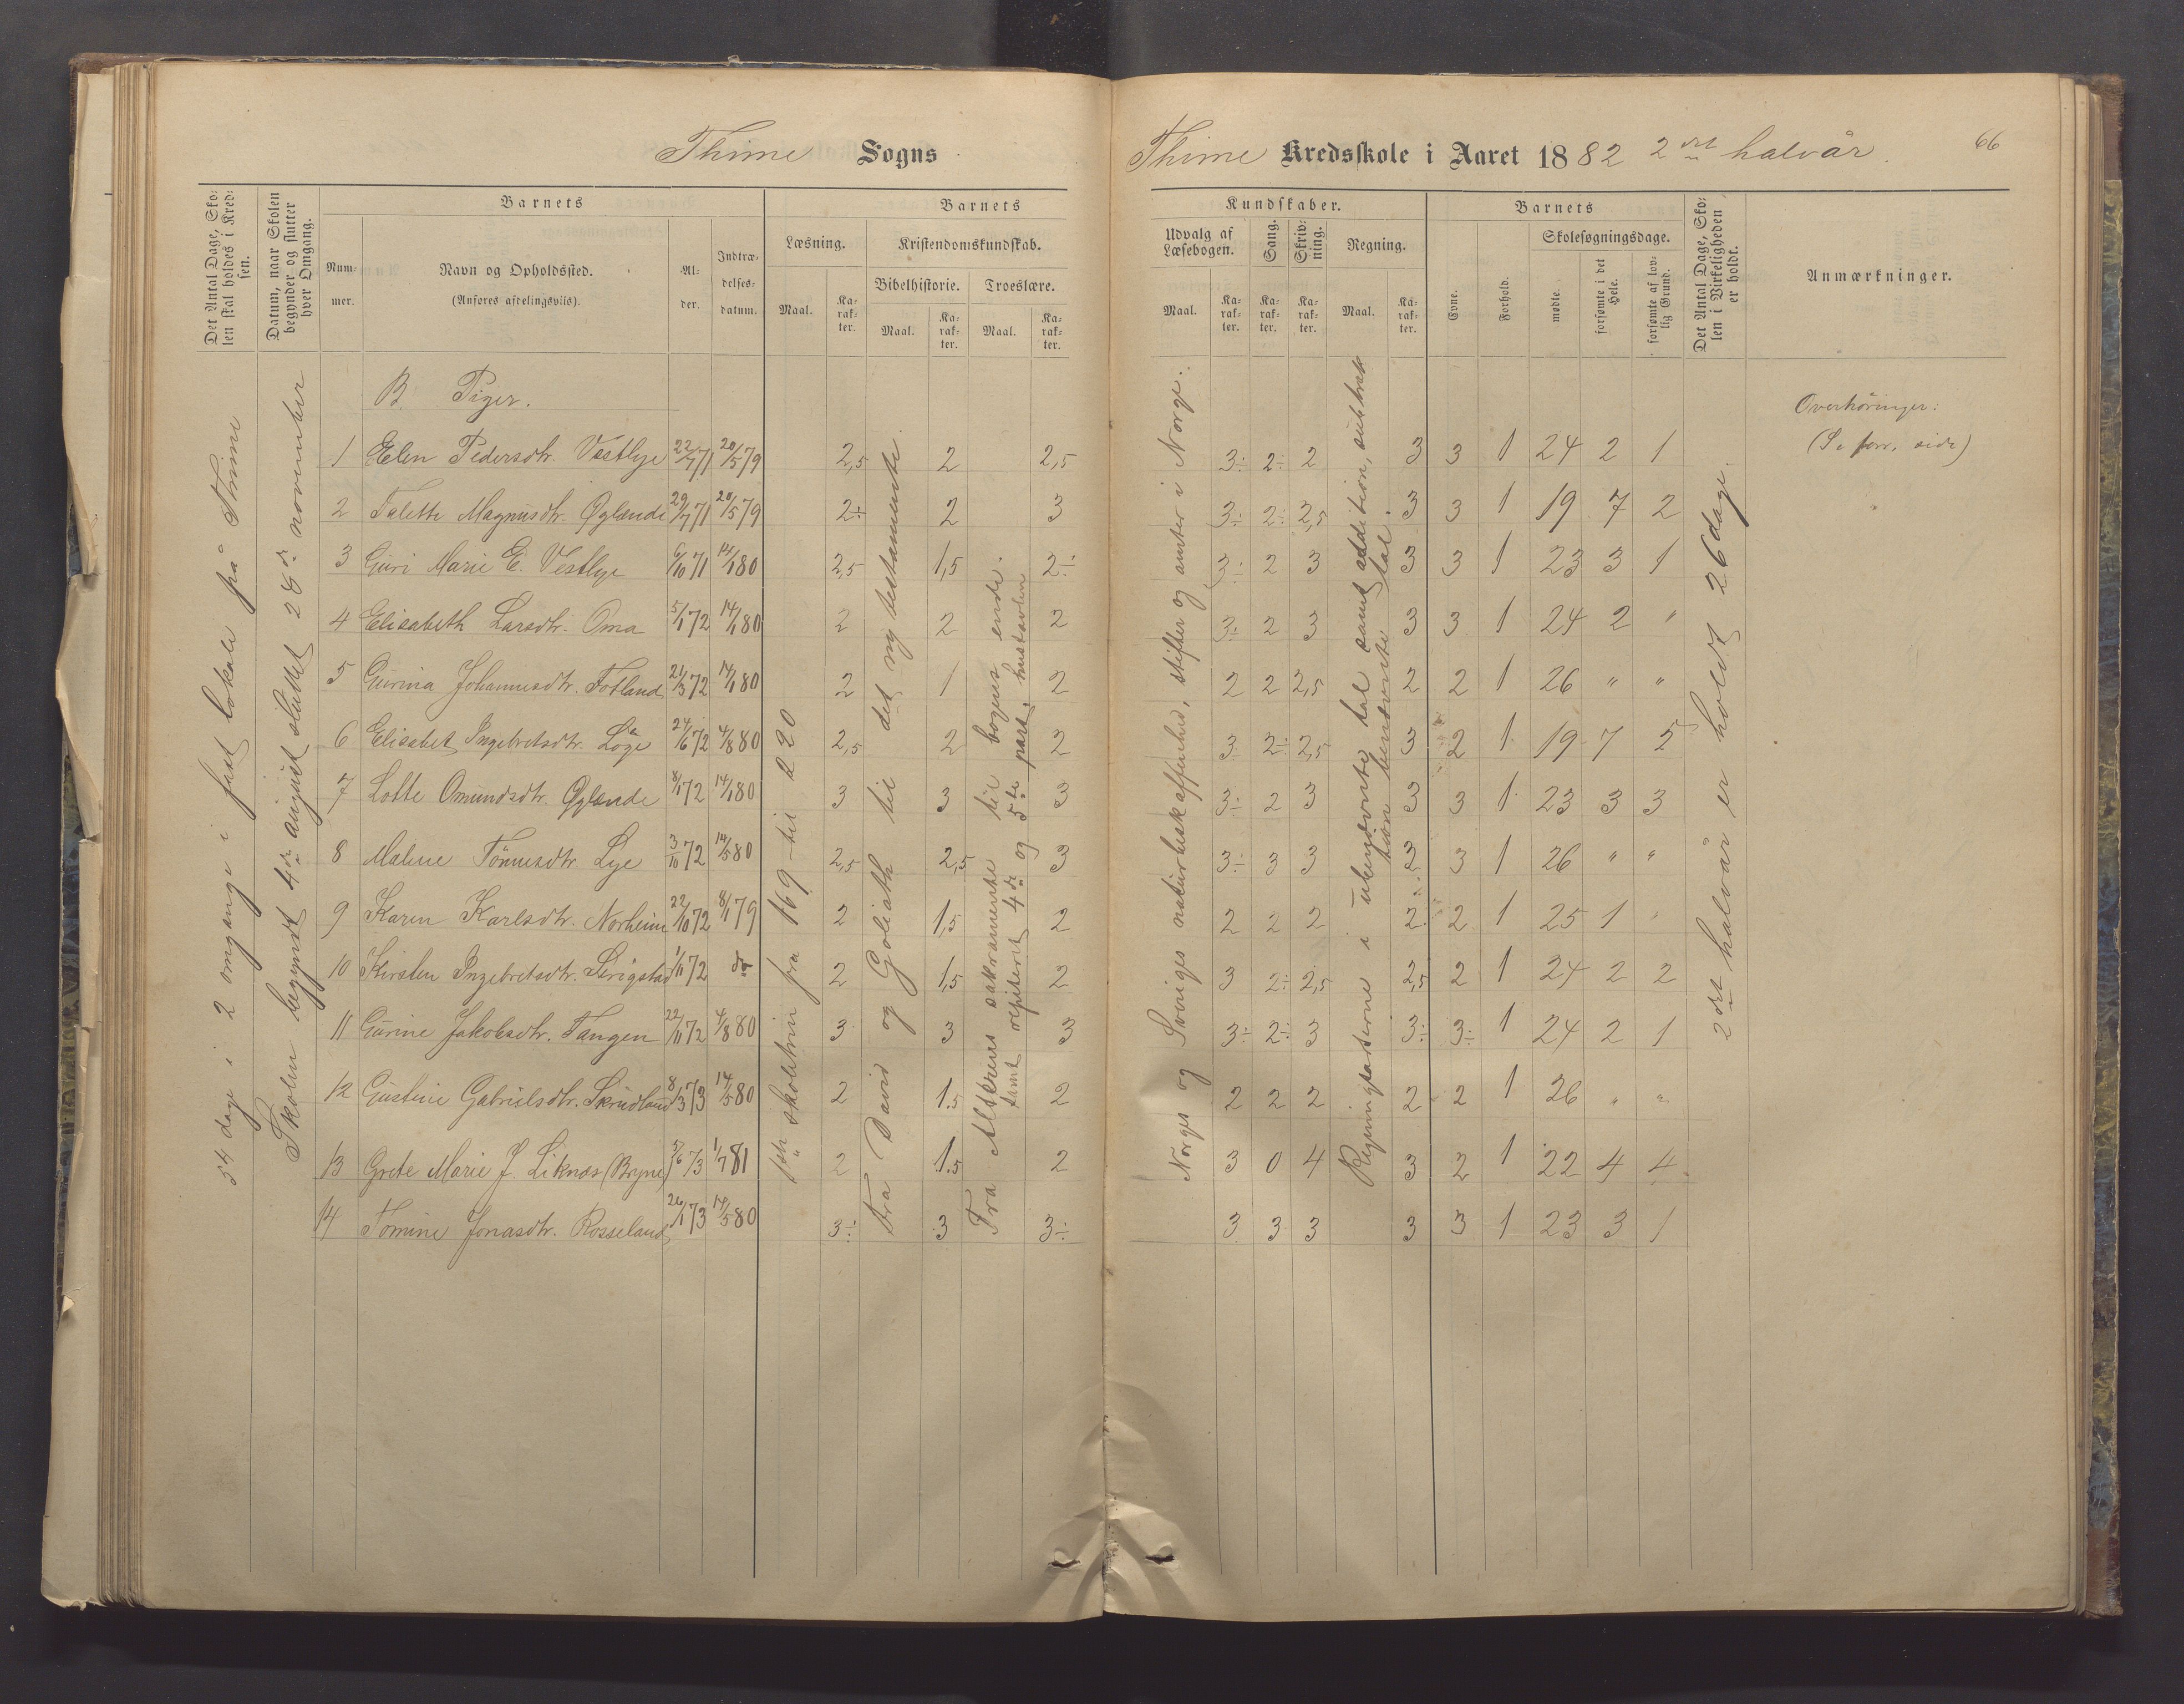 Thime Sogns
Thime Kredsskole i Aaret 1882 2det halvår.
66
Det Antal Dage, Skolen skal holdes i Kredsen.
Datum, naar Skolen begynder og slutter hver Omgang.
Barnets
Nummer.
Navn og Opholdssted.
(Anføres afdelingsviis).
Alder.
Indtrædelsesdatum.
Barnets
Læsning.
Maal.
Karakter.
Kristendomskundskab.
Bibelhistorie.
Maal.
Karakter.
Troeslære.
Maal.
Karakter.
Kundskaber.
Udvalg af Læsebogen.
Maal.
Karakter.
Sang.
Karakter.
Skrivning.
Karakter.
Regning.
Maal.
Karakter.
Barnets
Evne.
Forhold.
Skolesøgningsdage.
mødte.
forsømte i det Hele.
forsømte af lovlig Grund.
Det Antal Dage, Skolen i Virkeligheden er holdt.
Anmærkninger.
54 dage i 2 omgange i fast lokale på Thime
Skolen begyndt 4de august sluttet 28de november
B Piger.
1 Elen Pedersdtr. Vestlye 22/7 71 20/5 79 2,5 2 2,5 3÷ 2÷ 2 3 3 1 24 2 1
2 Talette Magnusdtr. Øglænde 29/7 71 20/5 79 2÷ 2 3 3÷ 2÷ 2,5 3 3 1 19 7 2
3 Guri Marie E. Vestlye 6/10 71 14/1 80 2,5 1,5 2÷ 3÷ 2 3 3 3 1 23 3 1
4 Elisabeth Larsdtr. Oma 5/1 72 14/1 80 2 2 2 3÷ 2 3 3 3 1 24 2 "
5 Gurina Johannesdtr. Fotland 21/3 72 14/1 80 2 1 2 2 2 2,5 2 2 1 26 " "
6 Elisabet Ingebretsdtr. Løge 24/6 72 4/8 80 2,5 2 2 3 2÷ 2,5 3 2 1 19 7 5
7 Lotte Omundsdtr. Øglænde 8/1 72 14/1 80 3 3 3 3÷ 2 3 3 3 1 23 3 3
8 Malene Tönnesdtr. Lye 3/10 72 14/5 80 2,5 2,5 3 3÷ 3 3 3 3 1 26 " "
9 Karen Karlsdtr. Norheim 22/10 72 8/1 79 2 1,5 2 2 2 2 2 2 1 25 1 "
10 Kirsten Ingebretsdtr. Serigstad 1/11 72 do 2 1,5 2 3 2÷ 2,5 2,5 2 1 24 2 2
11 Gurine Jakobsdtr. Tangen 22/11 72 4/8 80 3 3 3 3÷ 2÷ 3 3÷ 3÷ 1 24 2 1
12 Gustine Gabrielsdtr. Skrudland 8/3 73 14/5 80 2 1.5 2 2 2 2 2 2 1 26 " "
13 Grete Marie J. Liknæs (Bryne) 5/6 73 1/7 81 2 1.5 2 3 0 4 3 2 1 22 4 4
14 Tomine Jonasdtr. Rosseland, 26/1 73 14/5 80 3÷ 3 3÷ 3 3 3 3 3 1 23 3 1
skoletrin fra 169 til 220
Fra David og Goliath til det ny testamente.
Fra Alterens sakramente til bogens ende.
samt repiteret 4de og 5te part, hustavlen
Norges og Sveriges naturbeskaffenhed, stifter og amter i Norge.
Regningsarterne i ubenævnte tal samt addition, subtraktion benævnte tal.
2det halvår er holdt 26 dage.
Overhøringer:
(Se forr. side)